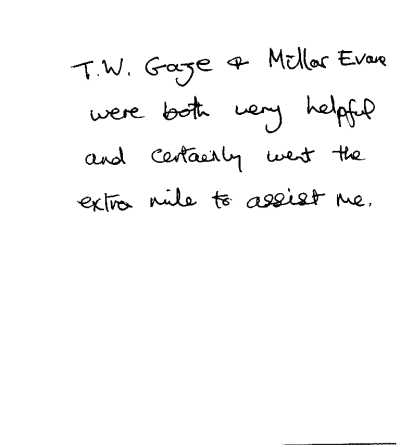 T.W. Gaze & Millar Evans
were both very helpful
and certainly went the
extra mile to assist me.